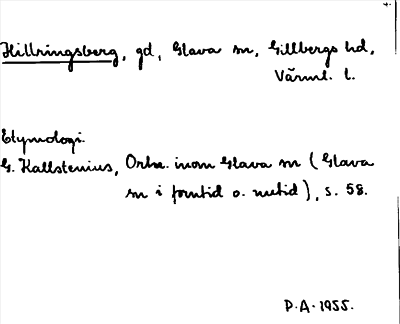 Hillringsberg, gd, Glava sn, Gillbergs hd,
Värml. l.
Etymologi.
G. Kallstenius, Ortn. inom Glava sn (Glava
sn i forntid o. nutid), s. 58.
P.A. 1955.